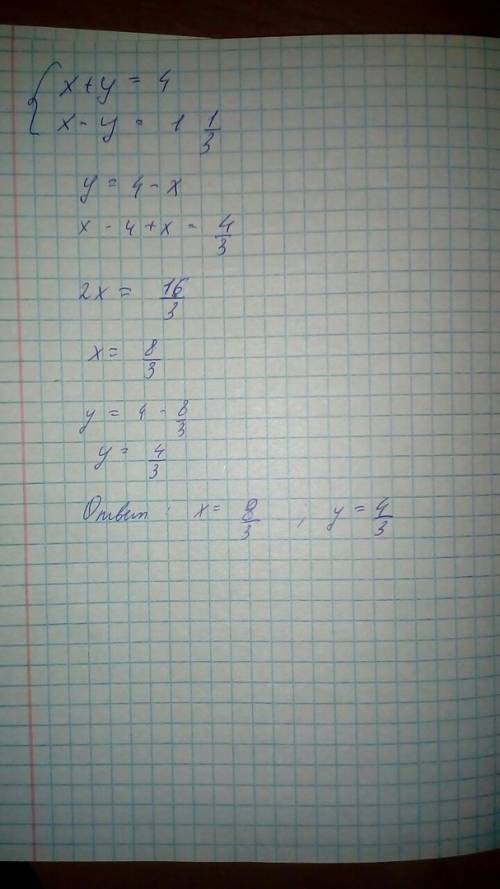 x + y = 4
x - y = 1 1/3
y = 4 - x
x - 4 + x = 4/3
2x = 16/3
x = 8/3
y = 4 - 8/3
y = 4/3
Ответ: x = 8/3, y = 4/3